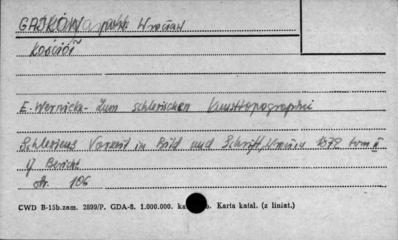 GAJKÓW pow. Wrocław
Kościół
E. Wernicke - Zum schlesischen Kunsttopographie
Schlesiens Vorzeit in Bild und Schrift, 1872 tom II
9 Bericht
str. 186
CWD B-15b.zam. 2899/P. GDA-8. 1.000.000. Karta katal. (z liniat.)